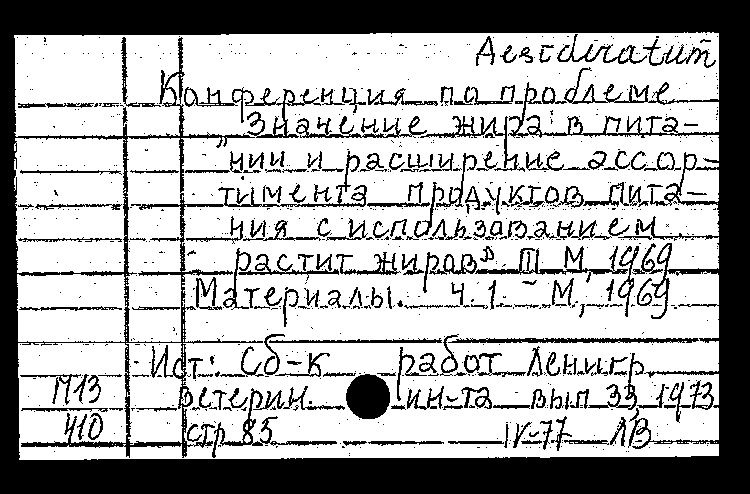 Desideratum
Конференция по проблеме
Значение жира в пита-
"нии и расширение ассор-
тимента продуктов пита-
ния с использованием
растит жиров" Ш М, 1969
Материалы. Ч. 1. - М, 1969
Ист: Сб-к работ Ленигр.
М13 ветерин. ин-та вып 33, 1973
410 стр 85 IV-77 ЛВ